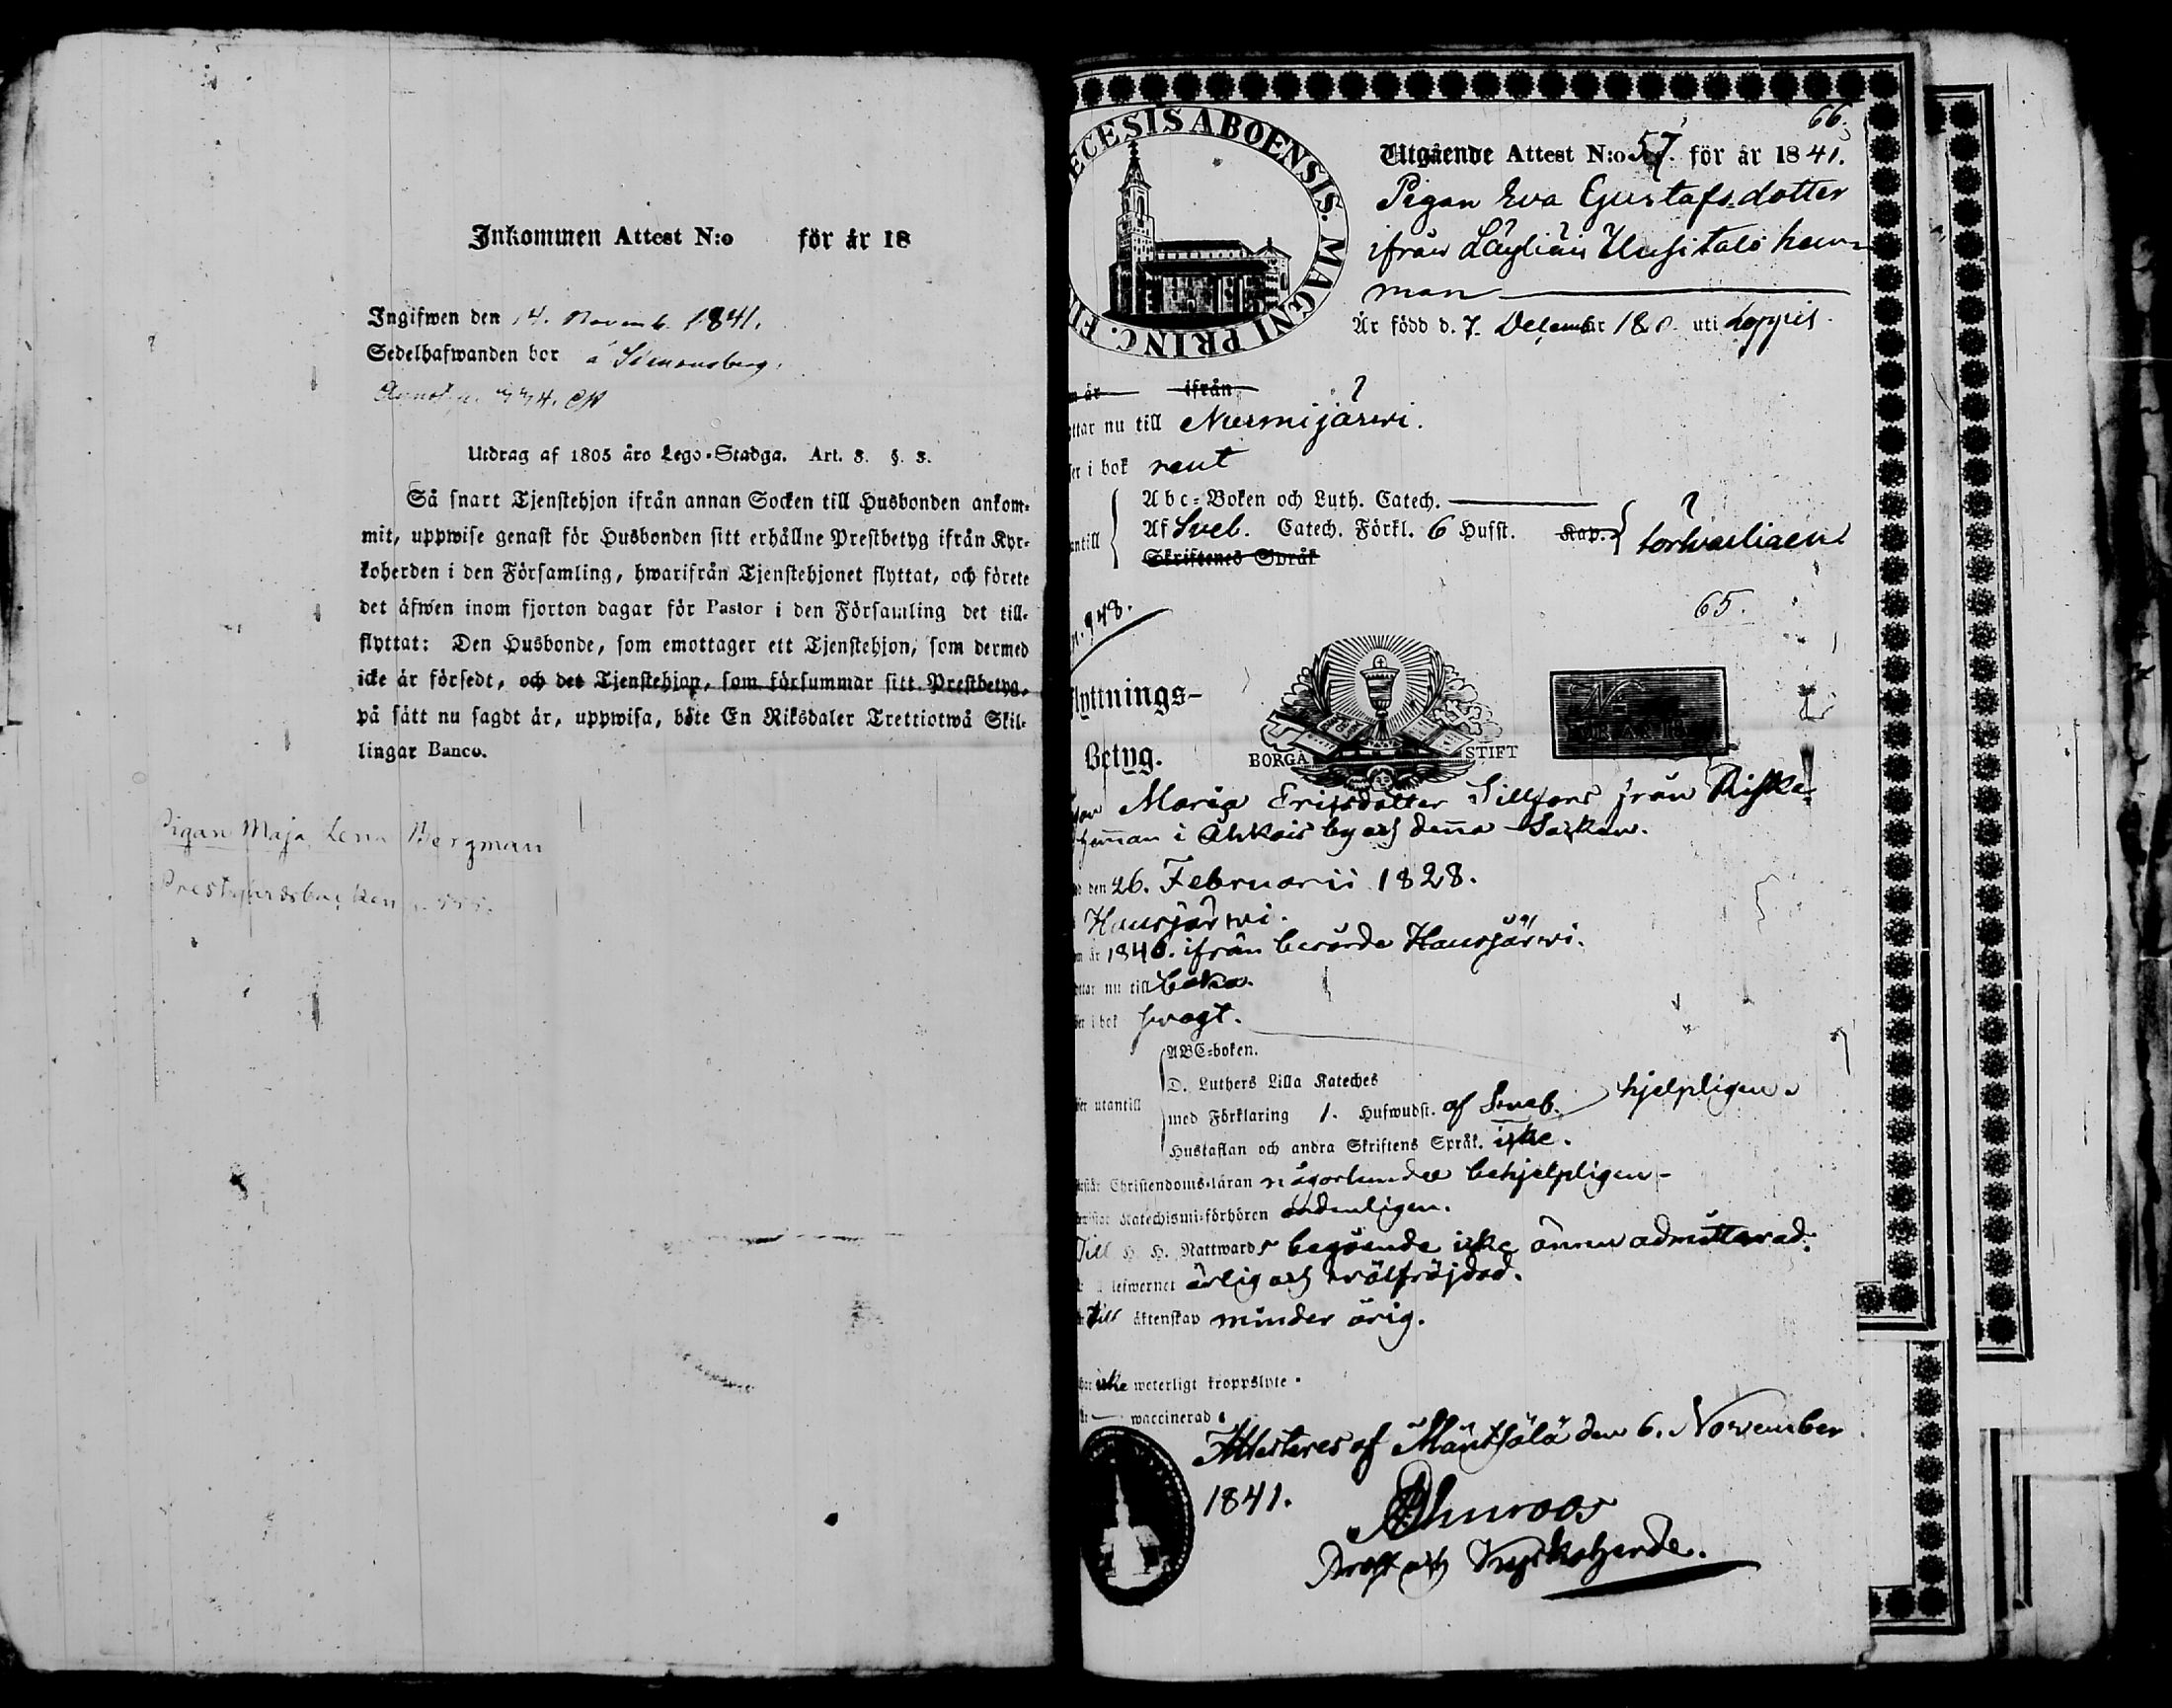 Inkommen Attest N:o för år 18
Ingifwen den 14. Novemb. 1841.
Sedelhafwanden bor å Simonsberg.
Utdrag af 1805 års Lego-Stadga. Art. 3. §. 3.
Så snart Tjenstehjon ifrån annan Socken till Husbonden ankom-
mit, uppwise genast för Husbonden sitt erhållne Prestbetyg ifrån Kyr-
koherden i den Församling, hwarifrån Tjenstehjonet flyttat, och förete
det äfwen inom fjorton dagar för Pastor i den Församling det till-
flyttat: Den Husbonde, som emottager ett Tjenstehjon, som dermed
icke är försedt, och det Tjenstehjon, som försummar sitt Prestbetyg,
på sätt nu sagdt är, uppwisa, böte En Riksdaler Trettiotwå Skil-
lingar Banco.
Pigan Maja Lena Bergman
Prestgårdsbacken
66.
ECESIS ABOENSIS. MAGNI PRINC. FI
Utgående Attest N:o 57. för år 1841.
Pigan Eva Gustafsdotter
ifrån Uusitalo hem-
man
Är född d. 7. December 18 uti Loppis.
är ifrån
ttar nu till Nurmijärwi.
er i bok rent
Abc-Boken och Luth. Catech.
antill Af Sveb. Catech. Förkl. 6 Hufst. Kap.
Skriftenes Språk
948.
65.
lyttnings-
Betyg.
BORGÅ STIFT
Maria Ericsdotter från
hemman i by och denna Socken.
den 26. Februarii 1828.
Hausjärwi.
år 1840. ifrån berörde Hausjärwi.
ttar nu till baka.
er i bok swagt.
ABC-boken.
D. Luthers Lilla Kateches
er utantill med Förklaring 1. Hufwudst. af Sveb. hjelpligen
Hustaflan och andra Skriftens Språk. icke.
rstår Christendoms-läran någorlunda behjelpligen
Katechismi-förhören ordentligen.
Till H. H. Nattwards begående icke ännu admitterad.
lefwernet ärlig och wälfräjdad.
till äktenskap minder årig.
har icke weterligt kroppslyte.
är waccinerad
Attesteres af Mäntsälä den 6. November
1841.
Prost och Kyrkoherde.